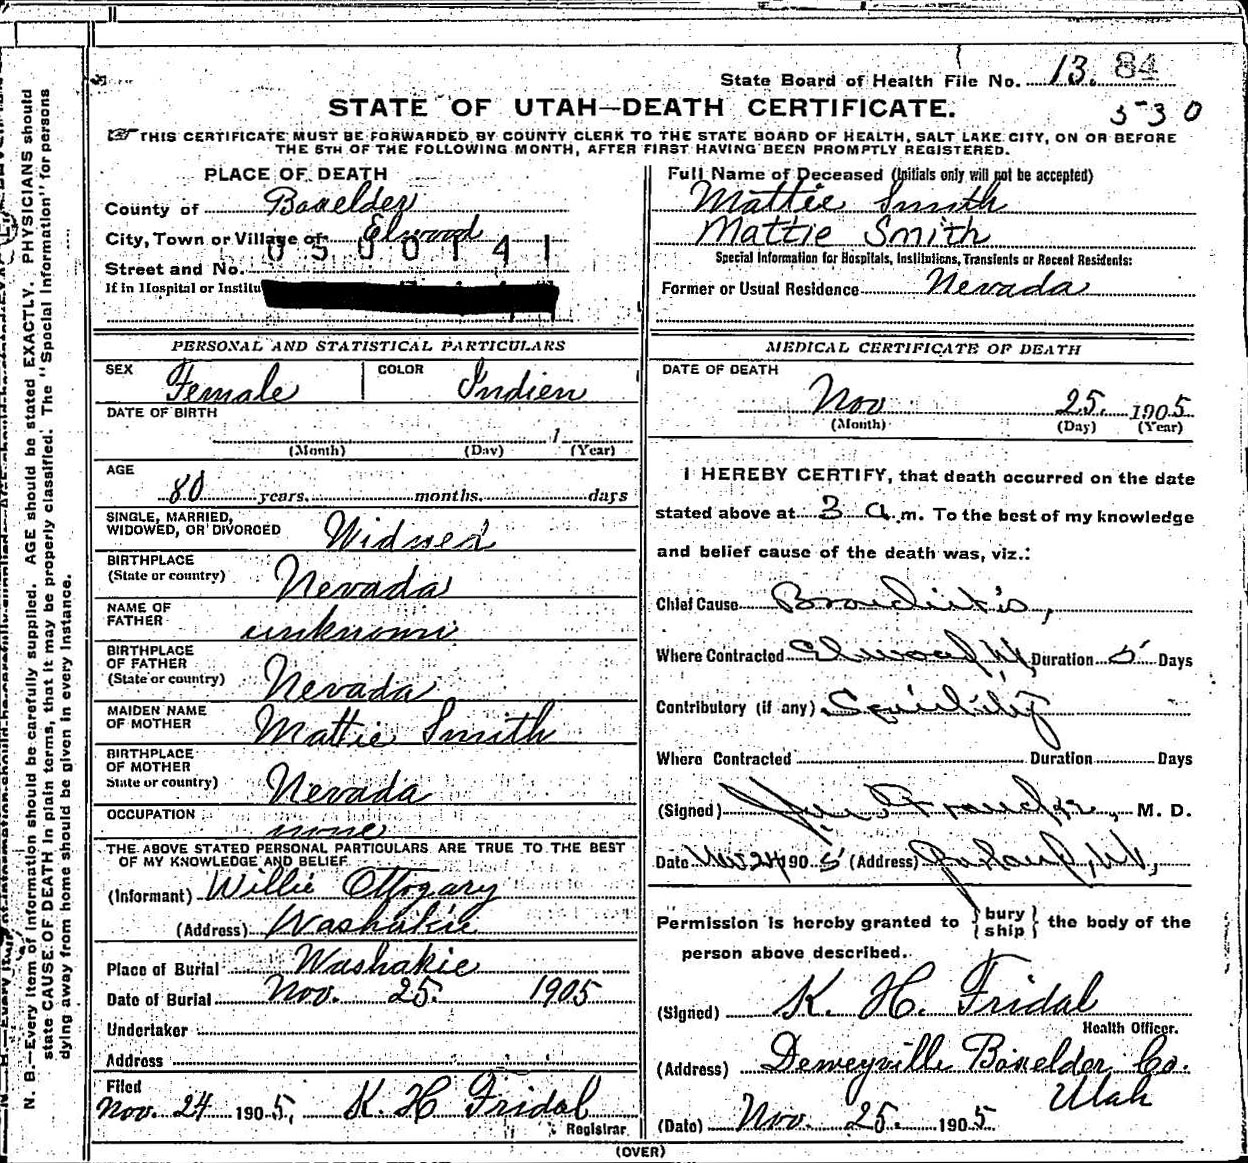 State Board of Health File No. 13. 84
530
STATE OF UTAH—DEATH CERTIFICATE.
THIS CERTIFICATE MUST BE FORWARDED BY COUNTY CLERK TO THE STATE BOARD OF HEALTH, SALT LAKE CITY, ON OR BEFORE
THE 5TH OF THE FOLLOWING MONTH, AFTER FIRST HAVING BEEN PROMPTLY REGISTERED.
PLACE OF DEATH
County of Boxelder
City, Town or Village of Elwood
0500141
Street and No.
If in Hospital or Institu
Full Name of Deceased (Initials only will not be accepted)
Mattie Smith
Mattie Smith
Special Information for Hospitals, Institutions, Transients or Recent Residents:
Former or Usual Residence Nevada
PERSONAL AND STATISTICAL PARTICULARS
SEX Female COLOR Indien
DATE OF BIRTH
1
(Month) (Day) (Year)
AGE
80 years. months. days
SINGLE, MARRIED,
WIDOWED, OR DIVORCED Widwed
BIRTHPLACE
(State or country) Nevada
NAME OF
FATHER unknown
BIRTHPLACE
OF FATHER
(State or country) Nevada
MAIDEN NAME
OF MOTHER Mattie Smith
BIRTHPLACE
OF MOTHER
State or country) Nevada
OCCUPATION none
THE ABOVE STATED PERSONAL PARTICULARS ARE TRUE TO THE BEST
OF MY KNOWLEDGE AND BELIEF
(Informant) Willie Ottogary
(Address) Washakie
Place of Burial Washakie
Date of Burial Nov. 25. 1905
Undertaker
Address
Filed
Nov. 24 1905, K. H Fridal
Registrar.
MEDICAL CERTIFICATE OF DEATH
DATE OF DEATH
Nov 25. 1905
(Month) (Day) (Year)
I HEREBY CERTIFY, that death occurred on the date
stated above at 3 a.m. To the best of my knowledge
and belief cause of the death was, viz.:
Chief Cause Bronchitis,
Where Contracted Elwood, Ut Duration 5 Days
Contributory (if any) Senility
Where Contracted Duration Days
(Signed) M. D.
Date Nov 24 1905 (Address)
Permission is hereby granted to { bury
ship } the body of the
person above described.
(Signed) K. H. Fridal
Health Officer.
(Address) Deweyville Boxelder Co.
Utah
(Date) Nov. 25. 1905
(OVER)
N. B.—Every item of information should be carefully supplied. AGE should be stated EXACTLY. PHYSICIANS should
state CAUSE OF DEATH in plain terms, that it may be properly classified. The "Special Information" for persons
dying away from home should be given in every instance.